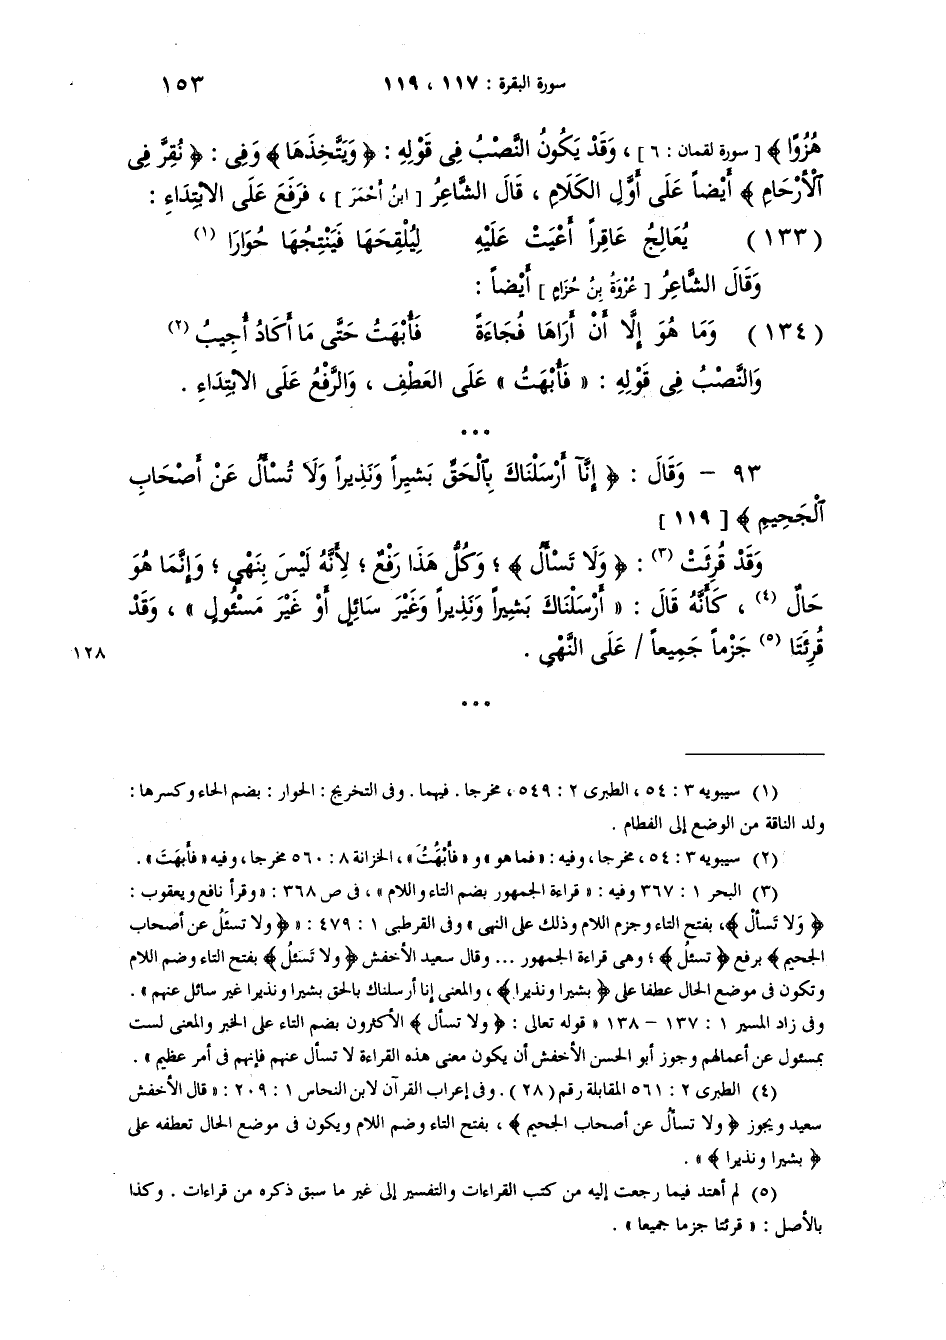 سورة البقرة : ١١٧ ، ١١٩ ١٥٣
هُزُوًا ﴾ [ سورة لقمان : ٦ ] ، وَقَدْ يَكُونُ النَّصْبُ فِى قَوْلِهِ : ﴿ وَيَتَّخِذَهَا ﴾ وَفِى : ﴿ نُقِرَّ فِى
ٱلْأَرْحَامِ ﴾ أَيْضاً عَلَى أَوَّلِ الكَلَامِ ، قَالَ الشَّاعِرُ [ ابنُ أَحْمَرَ ] ، فَرَفَعَ عَلَى الابْتِدَاءِ :
( ١٣٣ ) يُعَالِجُ عَاقِراً أَعْيَتْ عَلَيْهِ لِيُلْقِحَهَا فَيَنْتِجُهَا حُوَارَا (١)
وَقَالَ الشَّاعِرُ [ عُرْوَةُ بنُ حُزَامٍ ] أَيْضاً :
( ١٣٤ ) وَمَا هُوَ إِلَّا أَنْ أَرَاهَا فُجَاءَةً فَأُبْهَتُ حَتَّى مَا أَكَادُ أُجِيبُ (٢)
وَالنَّصْبُ فِى قَوْلِهِ : « فَأُبْهَتُ » عَلَى العَطْفِ ، وَالرَّفْعُ عَلَى الابْتِدَاءِ .
•••
٩٣ – وَقَالَ : ﴿ إِنَّآ أَرْسَلْنَاكَ بِٱلْحَقِّ بَشِيراً وَنَذِيراً وَلَا تُسْأَلُ عَنْ أَصْحَابِ
ٱلْجَحِيمِ ﴾ [ ١١٩ ]
وَقَدْ قُرِئَتْ (٣) : ﴿ وَلَا تَسْأَلُ ﴾ ؛ وَكُلُّ هَذَا رَفْعٌ ؛ لِأَنَّهُ لَيْسَ بِنَهْىٍ ؛ وَإِنَّمَا هُوَ
حَالٌ (٤) ، كَأَنَّهُ قَالَ : « أَرْسَلْنَاكَ بَشِيراً وَنَذِيراً وَغَيْرَ سَائِلٍ أَوْ غَيْرَ مَسْئُولٍ » ، وَقَدْ
قُرِئَتَا (٥) جَزْماً جَمِيعاً / عَلَى النَّهْىِ . ١٢٨
•••
(١) سيبويه ٣ : ٥٤ ، الطبرى ٢ : ٥٤٩ ، مخرجا . فيهما . وفى التخريج : الحوار : بضم الحاء وكسرها :
ولد الناقة من الوضع إلى الفطام .
(٢) سيبويه ٣ : ٥٤ ، مخرجا ، وفيه : « فما هو » و « فأُبْهَتُ » ، الخزانة ٨ : ٥٦٠ مخرجا ، وفيه « فأُبهَتَ » .
(٣) البحر ١ : ٣٦٧ وفيه : « قراءة الجمهور بضم التاء واللام » ، فى ص ٣٦٨ : « وقرأ نافع ويعقوب :
﴿ وَلا تَسأَلْ ﴾ ، بفتح التاء وجزم اللام وذلك على النهى » وفى القرطبى ١ : ٤٧٩ : « ﴿ ولا تسئَلُ عن أصحاب
الجحيم ﴾ برفع ﴿ تسئلُ ﴾ ؛ وهى قراءة الجمهور ... وقال سعيد الأخفش ﴿ ولا تَسئلُ ﴾ بفتح التاء وضم اللام
وتكون فى موضع الحال عطفا على ﴿ بشيرا ونذيرا ﴾ ، والمعنى إنا أرسلناك بالحق بشيرا ونذيرا غير سائل عنهم » .
وفى زاد المسير ١ : ١٣٧ – ١٣٨ « قوله تعالى : ﴿ ولا تسأل ﴾ الأكثرون بضم التاء على الخبر والمعنى لست
بمسئول عن أعمالهم وجوز أبو الحسن الأخفش أن يكون معنى هذه القراءة لا تسأل عنهم فإنهم فى أمر عظيم » .
(٤) الطبرى ٢ : ٥٦١ المقابلة رقم ( ٢٨ ) . وفى إعراب القرآن لابن النحاس ١ : ٢٠٩ : « قال الأخفش
سعيد ويجوز ﴿ ولا تسألُ عن أصحاب الجحيم ﴾ ، بفتح التاء وضم اللام ويكون فى موضع الحال تعطفه على
﴿ بشيرا ونذيرا ﴾ » .
(٥) لم أهتد فيما رجعت إليه من كتب القراءات والتفسير إلى غير ما سبق ذكره من قراءات . وكذا
بالأصل : « قرئتا جزما جميعا » .